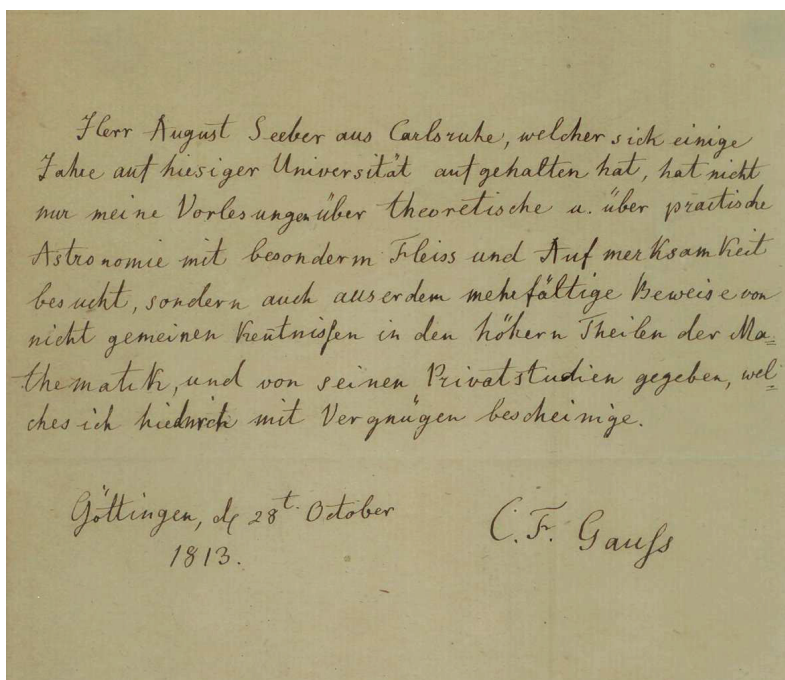 Herr August Seeber aus Carlsruhe, welcher sich einige
Jahre auf hiesiger Universität aufgehalten hat, hat nicht
nur meine Vorlesungen über theoretische u. über practische
Astronomie mit besonderm Fleiss und Aufmerksamkeit
besucht, sondern auch auserdem mehrfältige Beweise von
nicht gemeinen Keñtnissen in den höhern Theilen der Ma=
thematik, und von seinen Privatstudien gegeben, wel=
ches ich hiedurch mit Vergnügen bescheinige.
Göttingen, d 28t. October
1813.
C. F. Gauss